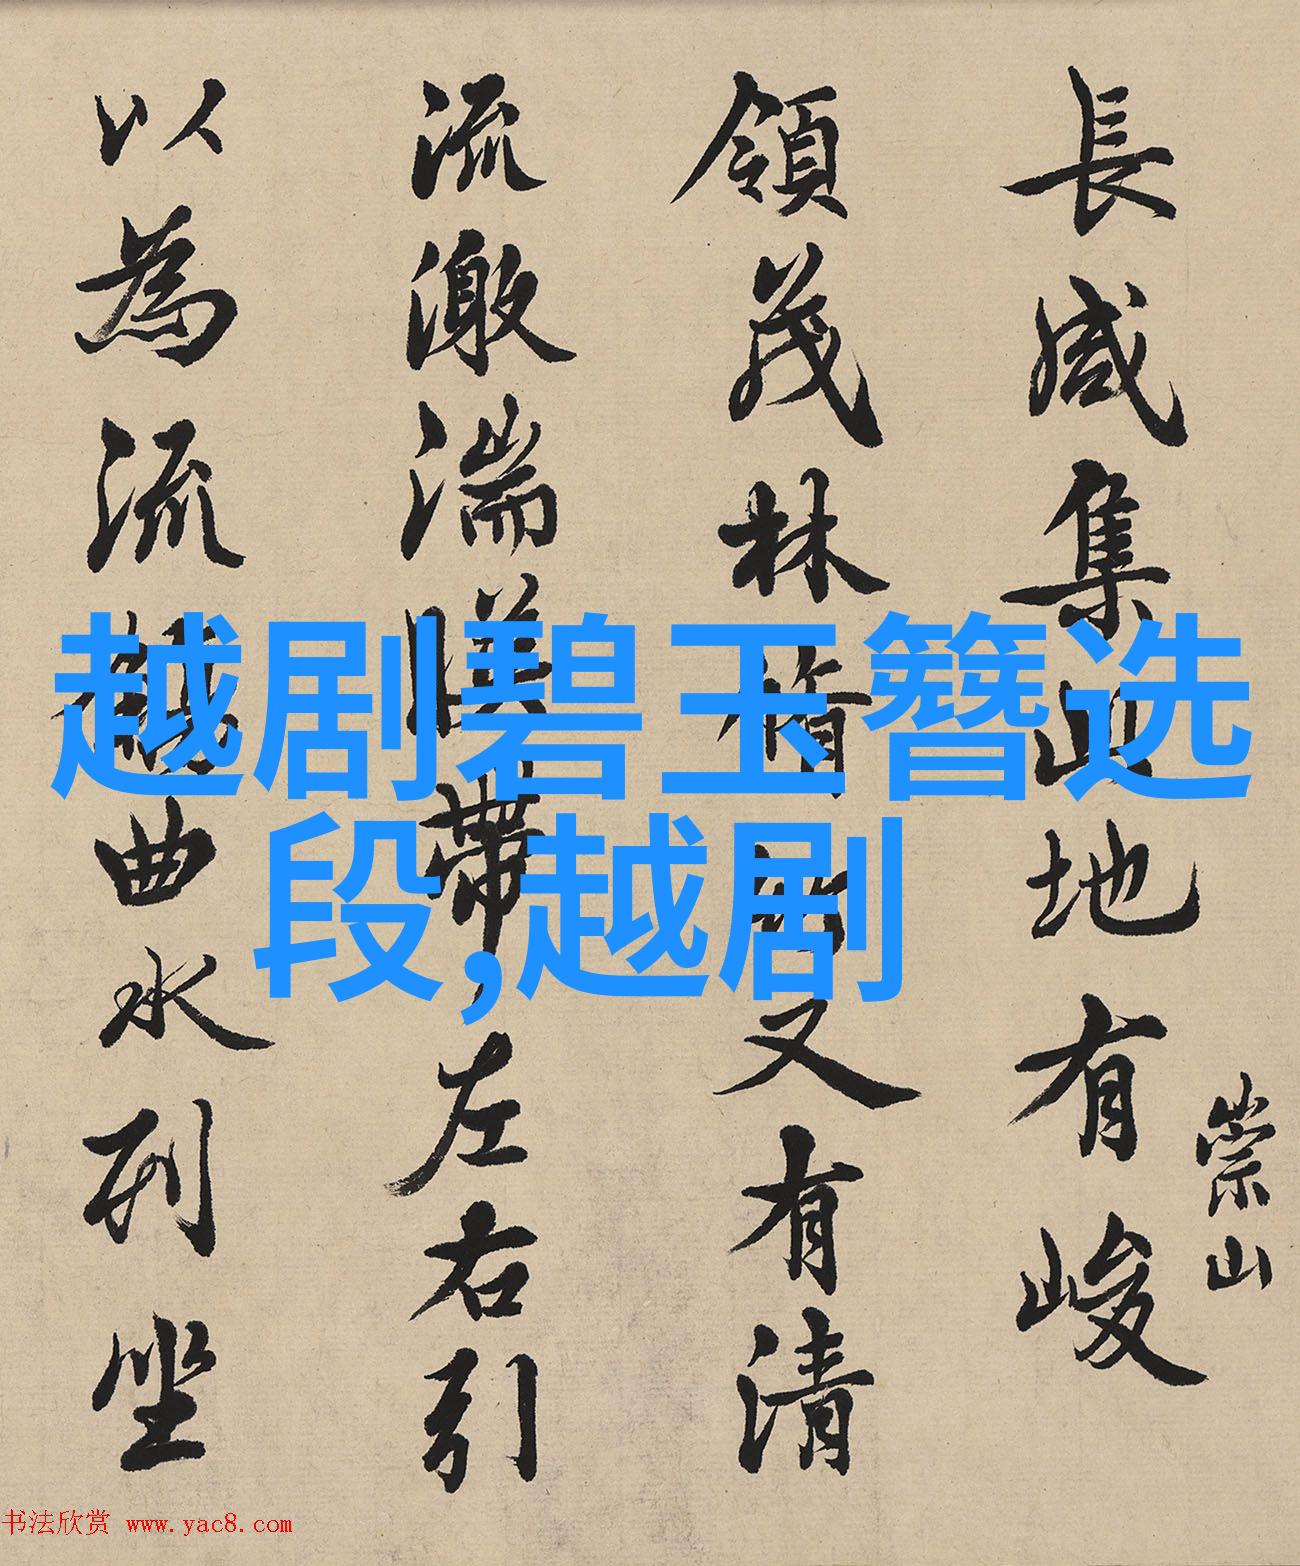 長咸集此地有峻
崇山
領茂林脩竹又有清
流激湍暎帶左右引
以為流觴曲水列坐
越剧碧玉簪选
段,越剧
书法欣赏 www.yac8.com